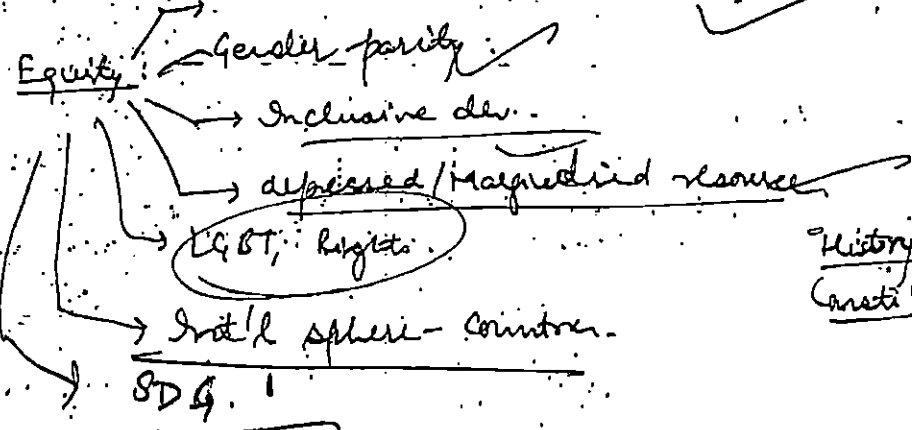 Equity :
Gender parity :
Inclusive dev.
depressed/Marginalised resource
LGBT, Rights.
Int'l sphere - countries.
SDG.
History
Consti